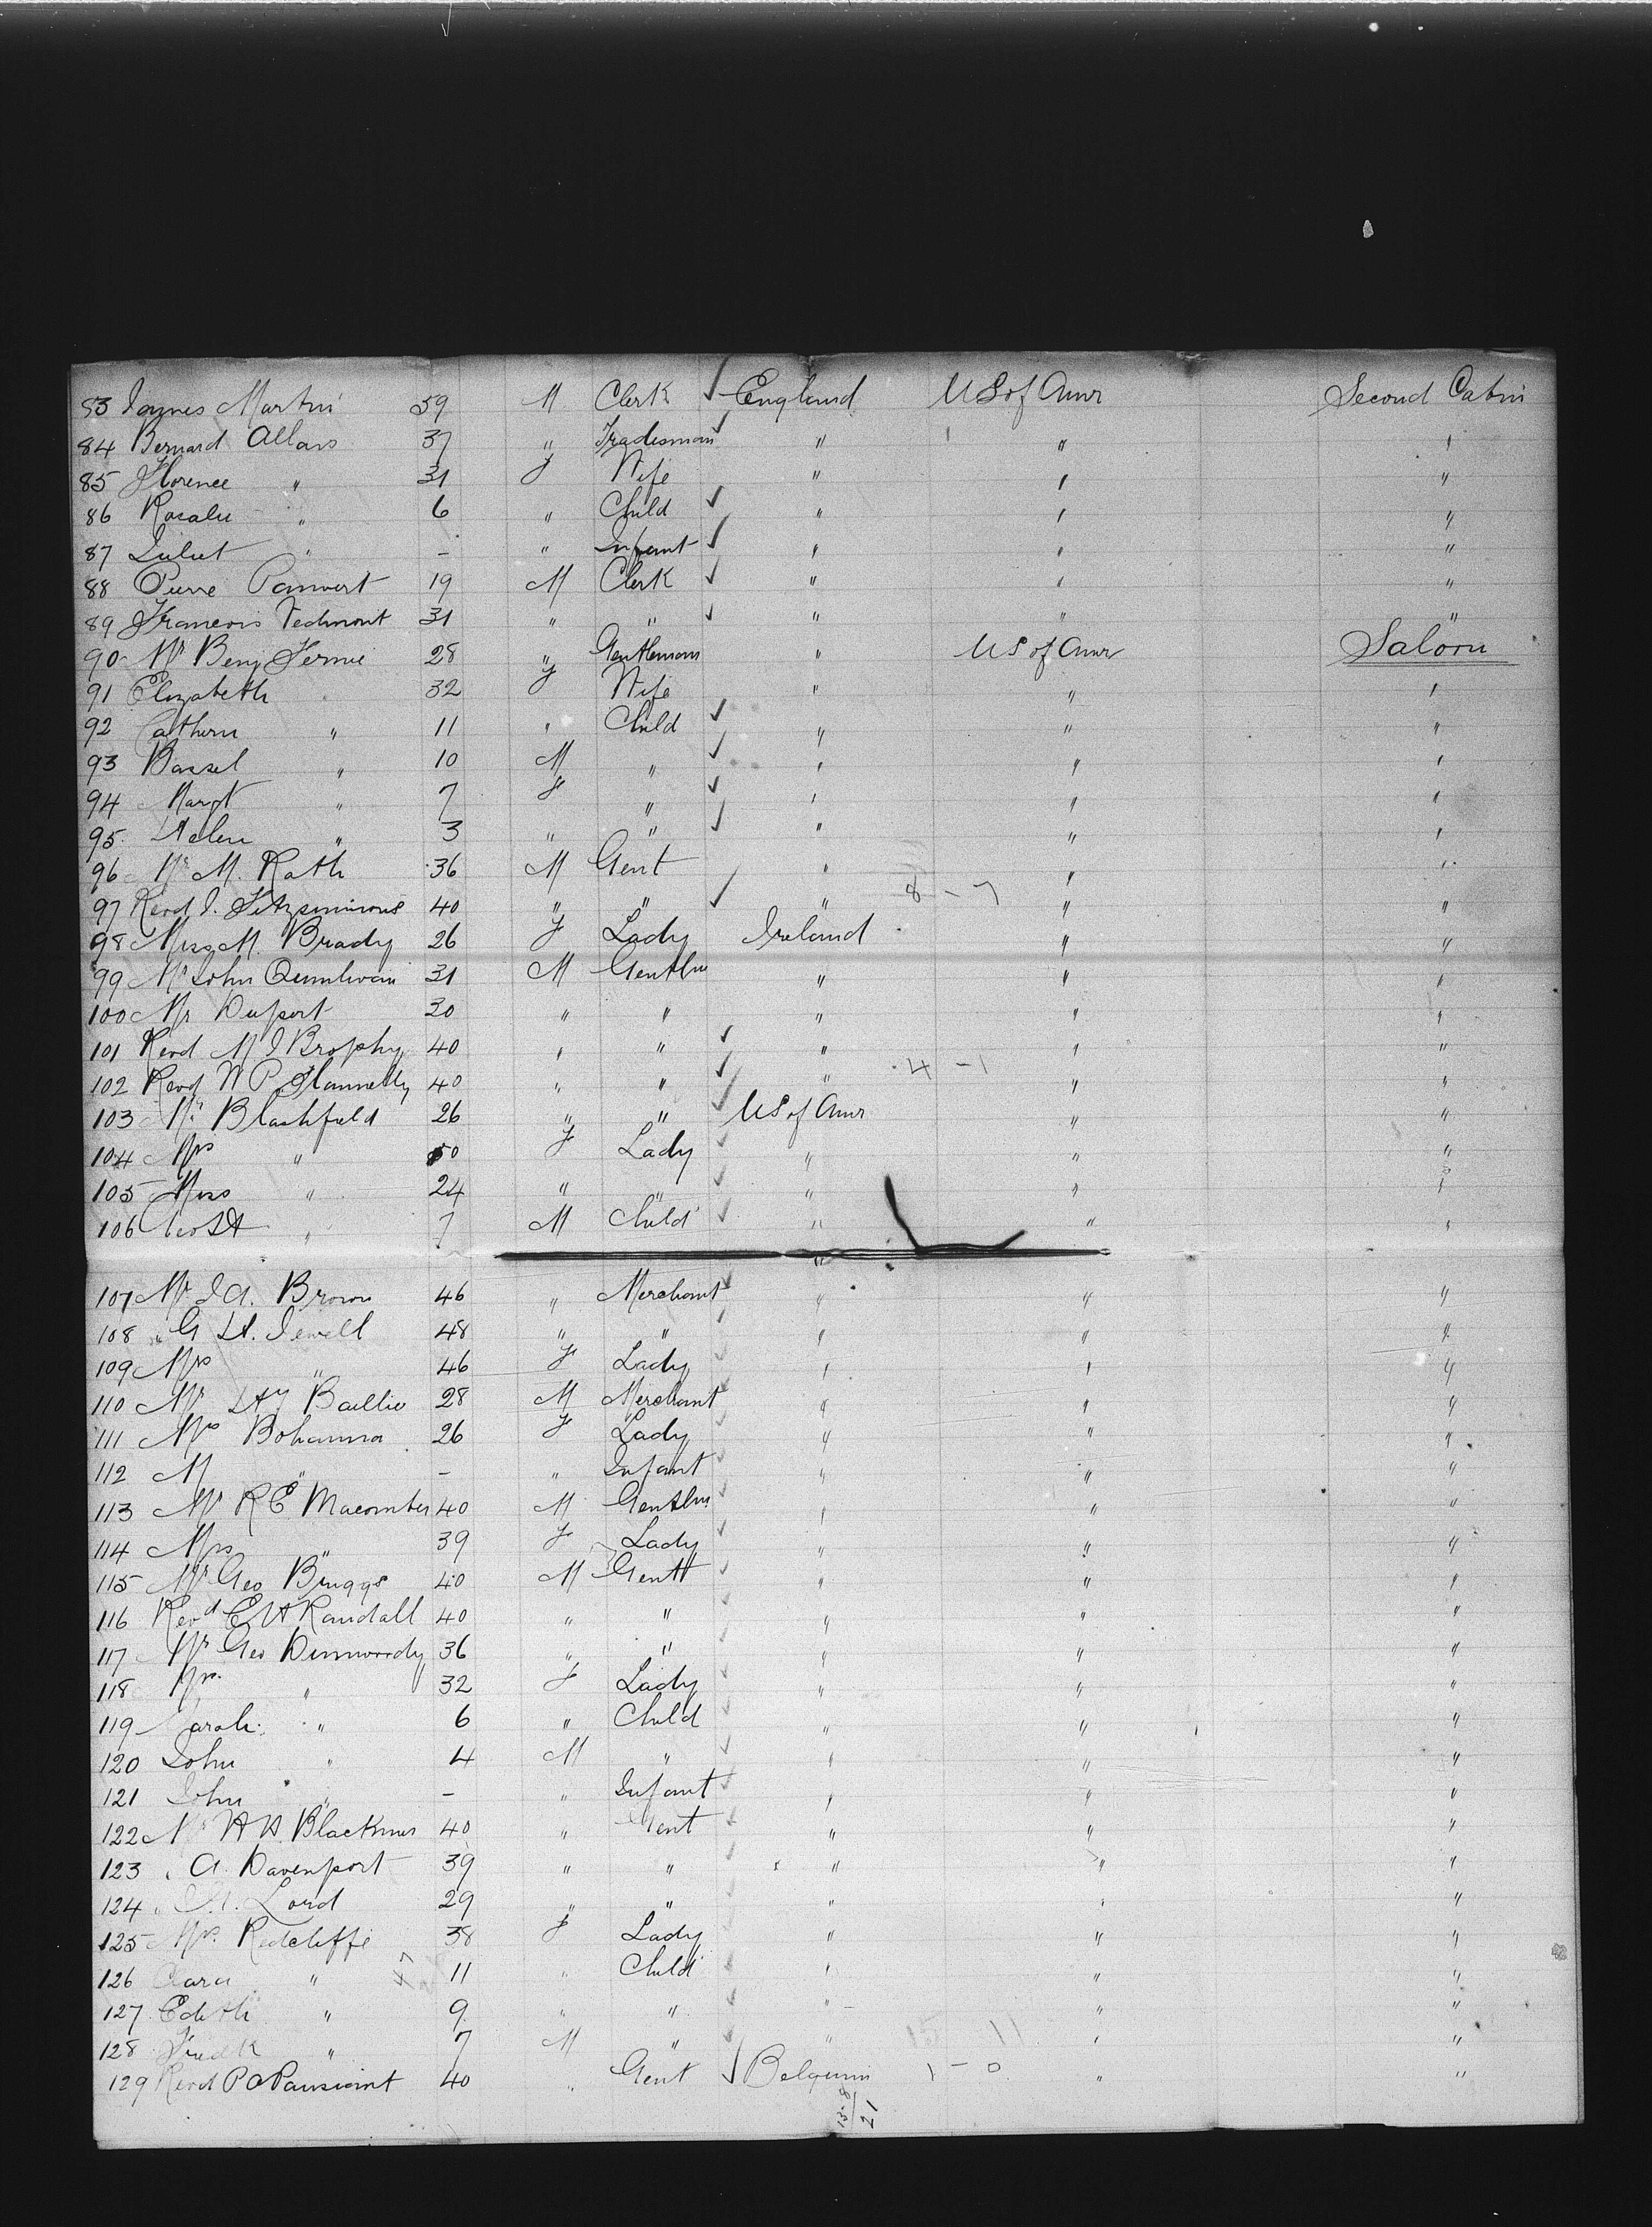 83 Jaynes Martin 39 M Clerk ✓ England US of Amr Second Cabin
84 Bernard Allars 37 " Tradesman ✓ " " "
85 Florence " 31 F Wife " " "
86 Rosalie " 6 " Child ✓ " " "
87 Juliet " - " Infant ✓ " " "
88 Pierre 19 M Clerk ✓ " " "
89 Francois 31 " " ✓ " " "
90 Mr Benj Fernie 28 " Gentleman " US of Amr Saloon
91 Elizabeth " 32 F Wife " " "
92 Cathern " 11 " Child ✓ " " "
93 Bassel " 10 M " ✓ " " "
94 Margt " 7 F " ✓ " " "
95 Helen " 3 " " ✓ " " "
96 Mr M. Rath 36 M Gent " " "
97 Revd J. Fitzsimmons 40 " " ✓ " 8 - 7 " "
98 Miss M. Brady 26 F Lady Ireland " "
99 Mr John Quinlivan 31 M Gentln " " "
100 Mr Duport 30 " " " " "
101 Revd M J Brophy 40 " " ✓ " " "
102 Revd W P Flannelly 40 " " ✓ " 4 - 1 " "
103 Mr Blashfield 26 " " ✓ US of Amr " "
104 Mrs " 50 F Lady ✓ " " "
105 Miss " 24 " " ✓ " " "
106 " 7 M Child ✓ " " "
107 Mr J A. Brown 46 " Merchant ✓ " " "
108 " G H. Jewell 48 " " ✓ " " "
109 Mrs " 46 F Lady ✓ " " "
110 Mr Hy Baillie 28 M Merchant ✓ " " "
111 Mrs Bohanna 26 F Lady ✓ " " "
112 M " - " Infant ✓ " " "
113 Mr R E Macomber 40 M Gentln ✓ " " "
114 Mrs " 39 F Lady ✓ " " "
115 Mr Geo Briggs 40 M Gentl ✓ " " "
116 Revd E H Randall 40 " " ✓ " " "
117 Mr Geo Dinwoody 36 " " ✓ " " "
118 Mrs " 32 F Lady ✓ " " "
119 Sarah " 6 " Child ✓ " " "
120 John " 4 M " ✓ " " "
121 John " - " Infant ✓ " " "
122 Mr H A Blackmer 40 " Gent ✓ " " "
123 " A. Davenport 39 " " ✓ " " "
124 " Lord 29 " " ✓ " " "
125 Mrs Redcliffe 38 F Lady ✓ " " "
126 Clara " 11 " Child ✓ " " "
127 Edith " 9 " " ✓ " " "
128 Fredk " 7 M " ✓ " 15 11 " "
129 Revd P O 40 " Gent ✓ Belgium 1 - 0 " "
13-8
21